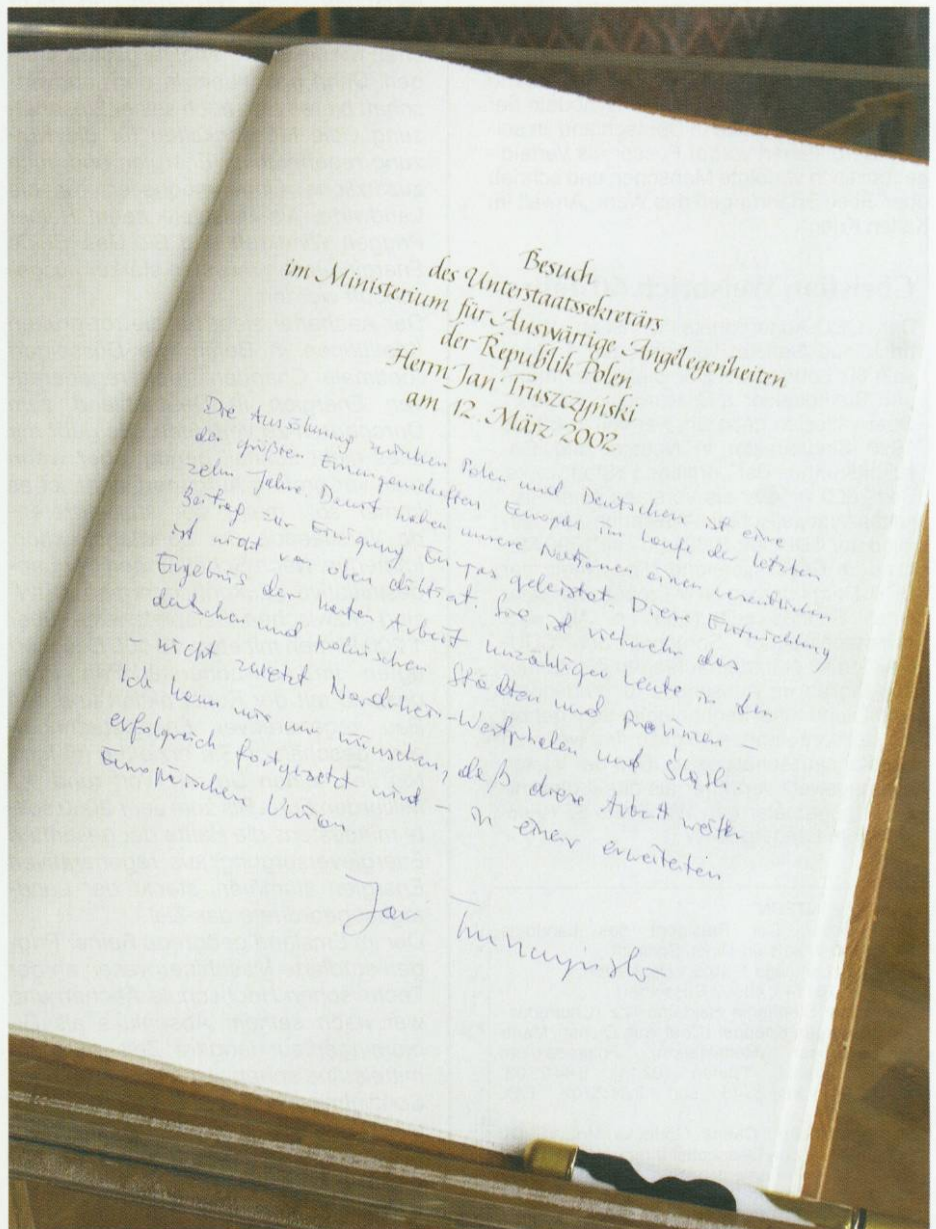 Besuch
des Unterstaatssekretärs
im Ministerium für Auswärtige Angelegenheiten
der Republik Polen
Herrn Jan Truszczyński
am 12. März 2002
Die Aussöhnung zwischen Polen und Deutschen ist eine
der größten Errungenschaften Europas im Laufe der letzten
zehn Jahre. Damit haben unsere Nationen einen wesentlichen
Beitrag zur Einigung Europas geleistet. Diese Entwicklung
ist nicht von oben diktiert. Sie ist vielmehr das
Ergebnis der harten Arbeit unzähliger Leute in den
deutschen und polnischen Städten und Provinzen –
– nicht zuletzt Nordrhein-Westphalen und Śląsk.
Ich kann mir nur wünschen, daß diese Arbeit weiter
erfolgreich fortgesetzt wird – in einer erweiterten
Europäischen Union
Jan Truszczyński